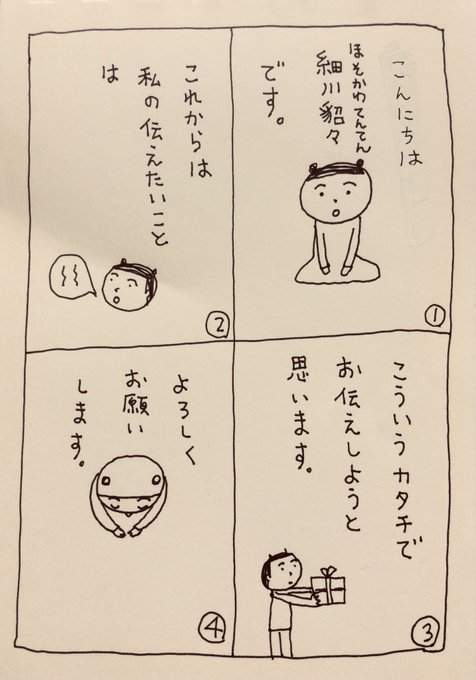 こんにちは
ほそかわてんてん
細川貂々
です。
①
これからは
私の伝えたいこと
は
②
こういうカタチで
お伝えしようと
思います。
③
よろしく
お願い
します。
④